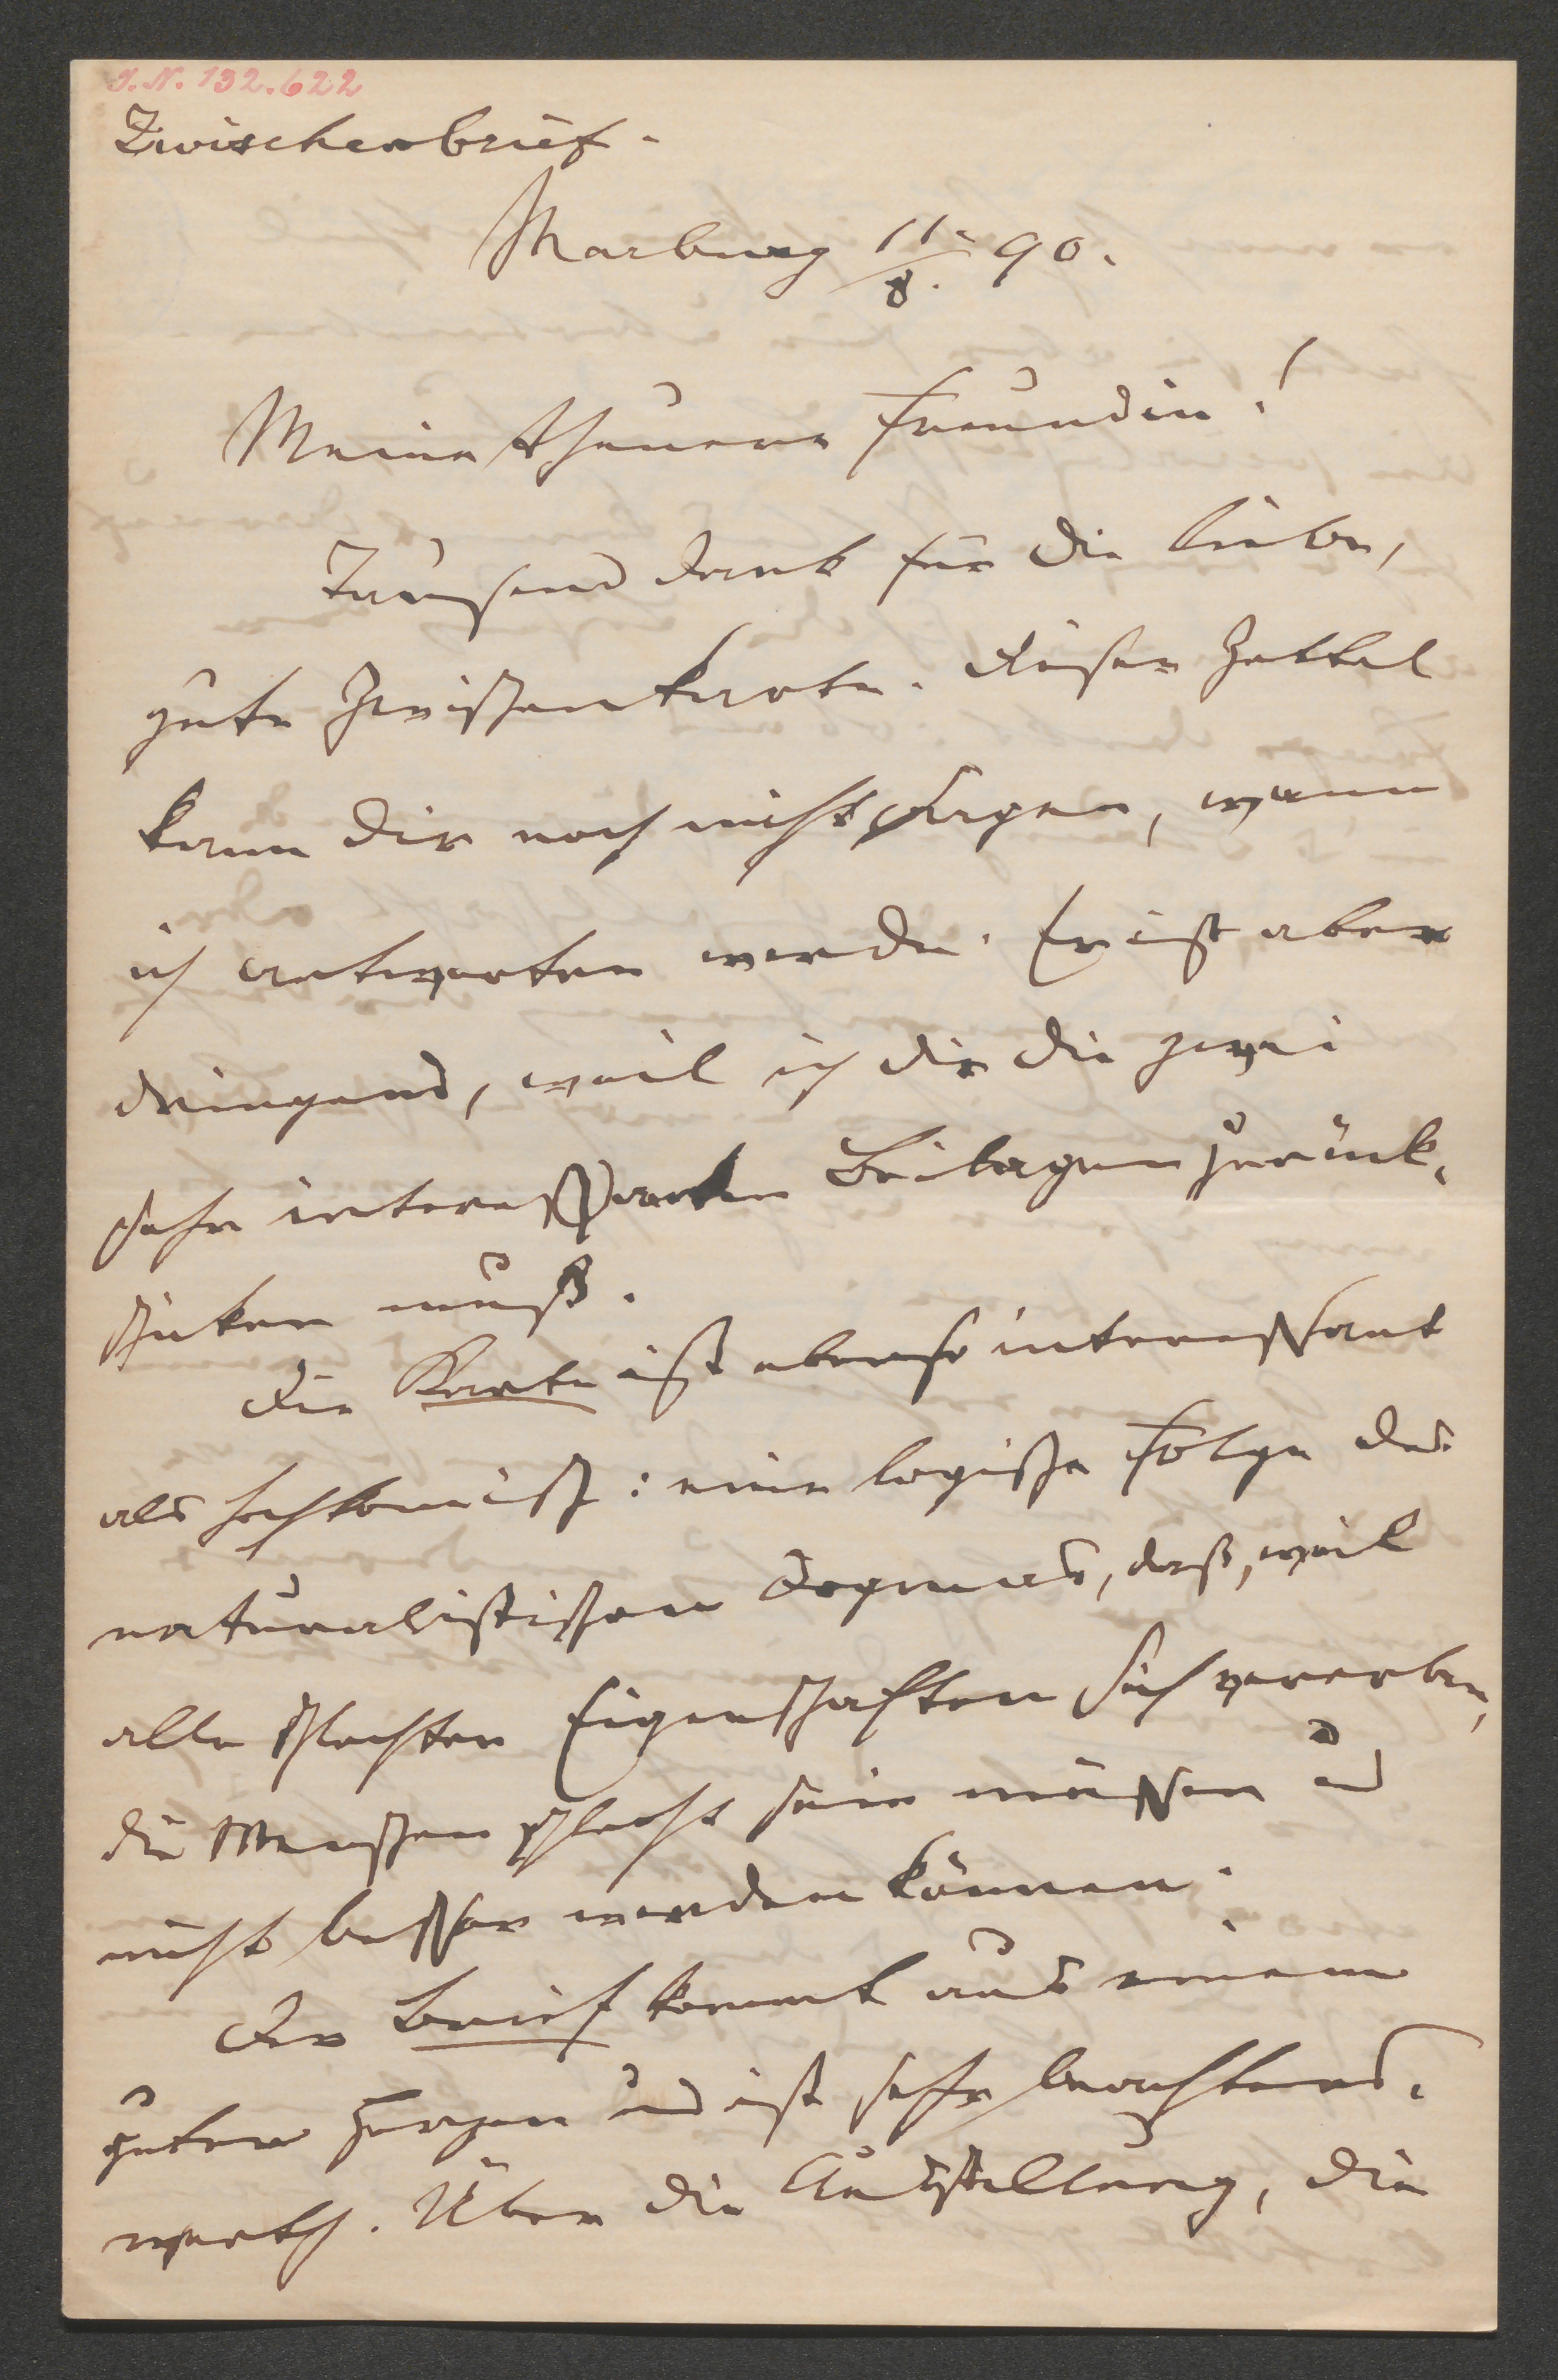 I.N. 132.622
Zwischenbrief.
Marburg 11./8. 90.
Meine theuere Freundin!
Tausend Dank für die liebe,
gute Zwischenkarte. Dieser Zettel
kann dir noch nicht sagen, wann
ich antworten werde. Er ist aber
dringend, weil ich dir die zwei
sehr interessanten Beilagen zurück-
schicken muß.
Die Karte ist ebenso interessant
als hochkomisch: eine logische Folge des
naturalistischen Dogmas, daß, weil
alle schlechten Eigenschaften sich vererben,
die Menschen schlecht sein müssen und
nicht besser werden können.
Der Brief kommt aus einem
guten Herzen und ist sehr beachtens-
werth. Über die Ausstellung, die